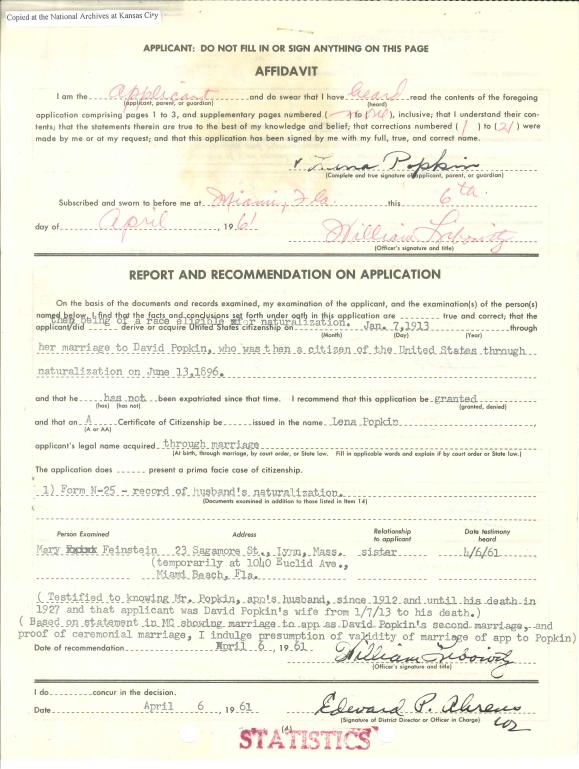 Copied at the National Archives at Kansas City
APPLICANT: DO NOT FILL IN OR SIGN ANYTHING ON THIS PAGE
AFFIDAVIT
I am the applicant and do swear that I have heard read the contents of the foregoing
(applicant, parent, or guardian) (heard)
application comprising pages 1 to 3, and supplementary pages numbered ( ) to ( ), inclusive; that I understand their con-
tents; that the statements therein are true to the best of my knowledge and belief; that corrections numbered ( 1 ) to ( 2 ) were
made by me or at my request; and that this application has been signed by me with my full, true, and correct name.
Popkin
(Complete and true signature of applicant, parent, or guardian)
Subscribed and sworn to before me at Miami, Fla. this 6th
day of April , 1961 William
(Officer's signature and title)
REPORT AND RECOMMENDATION ON APPLICATION
On the basis of the documents and records examined, my examination of the applicant, and the examination(s) of the person(s)
named below, I find that the facts and conclusions set forth under oath in this application are true and correct; that the
then being of a race eligible for naturalization.
applicant/did derive or acquire United States citizenship on Jan. 7,1913 through
(Month) (Day) (Year)
her marriage to David Popkin, who was then a citizen of the United States through
naturalization on June 13,1896.
and that he has not been expatriated since that time. I recommend that this application be granted
(has) (has not) (granted, denied)
and that an A Certificate of Citizenship be issued in the name Lena Popkin ,
(A or AA)
applicant's legal name acquired through marriage
(At birth, through marriage, by court order, or State law. Fill in applicable words and explain if by court order or State law.)
The application does present a prima facie case of citizenship.
1) Form N-25 - record of husband's naturalization.
(Documents examined in addition to those listed in Item 14)
Person Examined Address Relationship to applicant Date testimony heard
Mary Feinstein 23 Sagamore St., Lynn, Mass. sister 4/6/61
(temporarily at 1040 Euclid Ave.,
Miami Beach, Fla.
( Testified to knowing Mr. Popkin, app's husband, since 1912 and until his death in
1927 and that applicant was David Popkin's wife from 1/7/13 to his death.)
( Based on statement in MC showing marriage to app as David Popkin's second marriage, and
proof of ceremonial marriage, I indulge presumption of validity of marriage of app to Popkin)
Date of recommendation April 6 , 1961 William
(Officer's signature and title)
I do concur in the decision.
Date April 6 , 1961 Edward P. Ahrens
(Signature of District Director or Officer in Charge)
(4)
STATISTICS